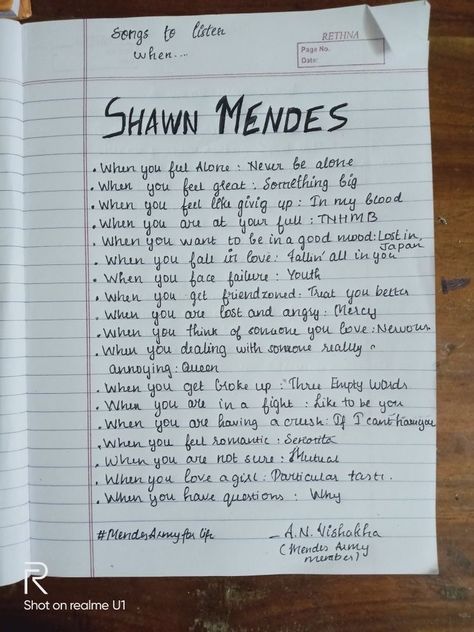 Songs to listen
when....
RETHNA
Page No.
Date:
SHAWN MENDES
• When you feel Alone : Never be alone
• When you feel great : Something big
• When you feel like givig up : In my blood
• When you are at your full : TNHMB
• When you want to be in a good mood: Lost in Japan
• When you fall in love : Fallin' all in you
• When you face failure : Youth
• When you get friendzoned : Treat you better
• When you are lost and angry : Mercy
• When you think of someone you love : Nervous
• When you dealing with someone really
annoying : Queen
• When you get broke up : Three Empty Words
• When you are in a fight : Like to be you
• When you are having a crush : If I can't have you
• When you feel romantic : Senorita
• When you are not sure : Mutual
• When you love a girl : Particular taste.
• When you have questions : Why
#MendesArmy for life
- A.N. Vishakha
(Mendes Army
member)
R
Shot on realme U1